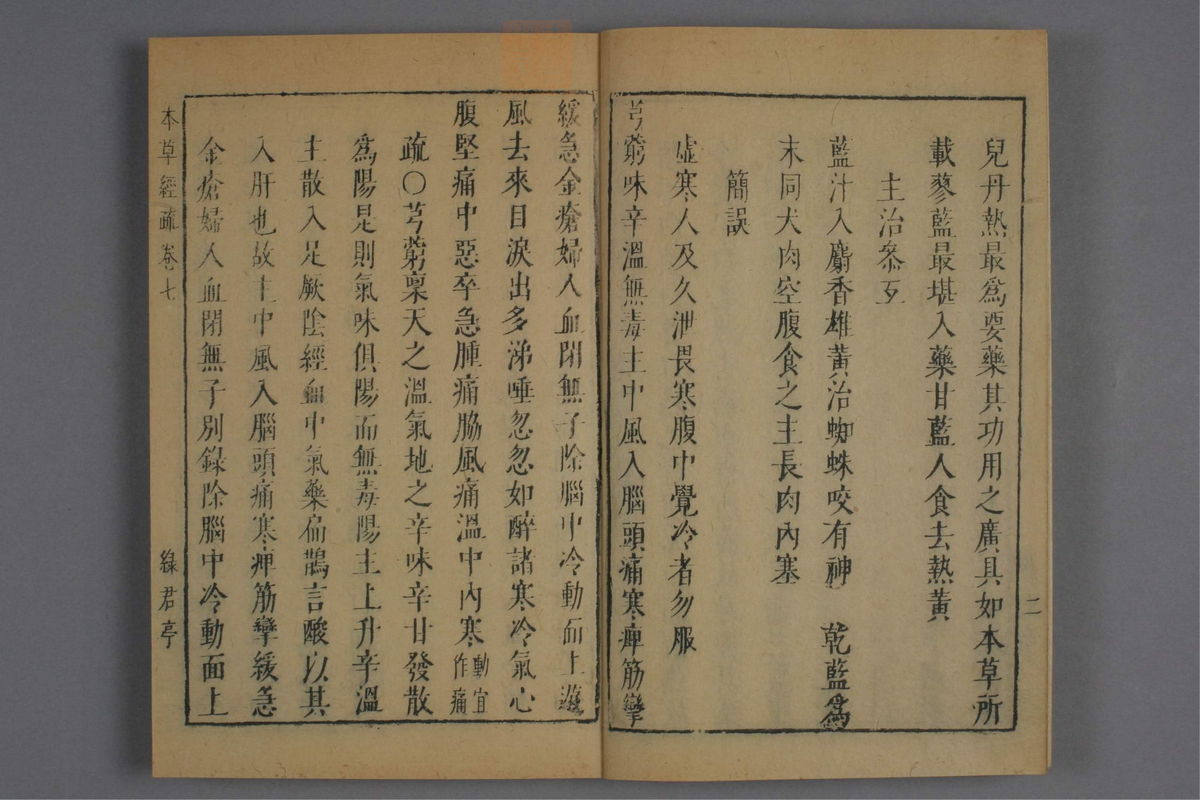 兒丹熱最爲要藥其功用之廣具如本草所
載蓼藍最堪入藥甘藍人食去熱黃
主治叅互
藍汁入麝香雄黃治蜘蛛咬有神　乾藍爲
末同犬肉空腹食之主長肉內塞
簡誤
虛寒人及久泄畏寒腹中覺冷者勿服
芎藭味辛溫無毒主中風入腦頭痛寒痺筋攣
二
緩急金瘡婦人血閉無子除腦中冷動面上遊
風去來目淚出多涕唾忽忽如醉諸寒冷氣心
腹堅痛中惡卒急腫痛脇風痛溫中內寒動宜作痛
疏〇芎藭稟天之溫氣地之辛味辛甘發散
爲陽是則氣味俱陽而無毒陽主上升辛溫
主散入足厥陰經血中氣藥扁鵲言酸以其
入肝也故主中風入腦頭痛寒痺筋攣緩急
金瘡婦人血閉無子別錄除腦中冷動面上
本草經疏 卷七
綠君亭